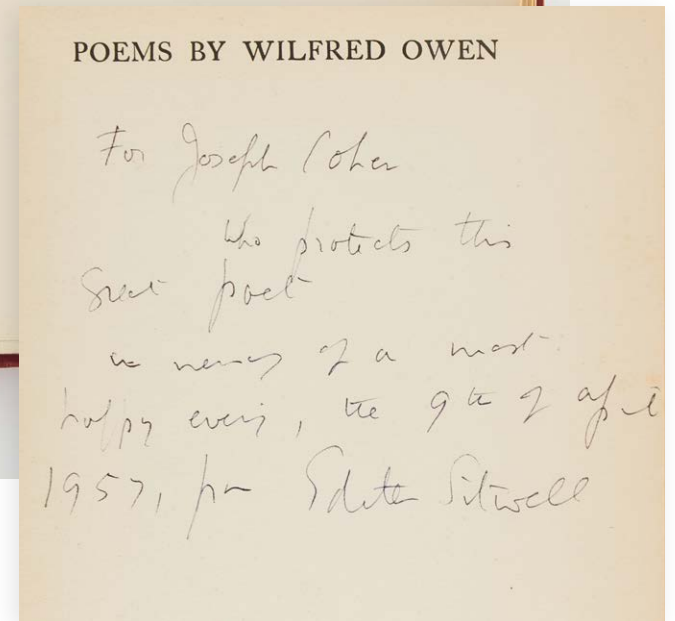 POEMS BY WILFRED OWEN
For Joseph Cohen
who protects this
great poet
in memory of a most
happy evening, the 9th of April
1957, from Edith Sitwell